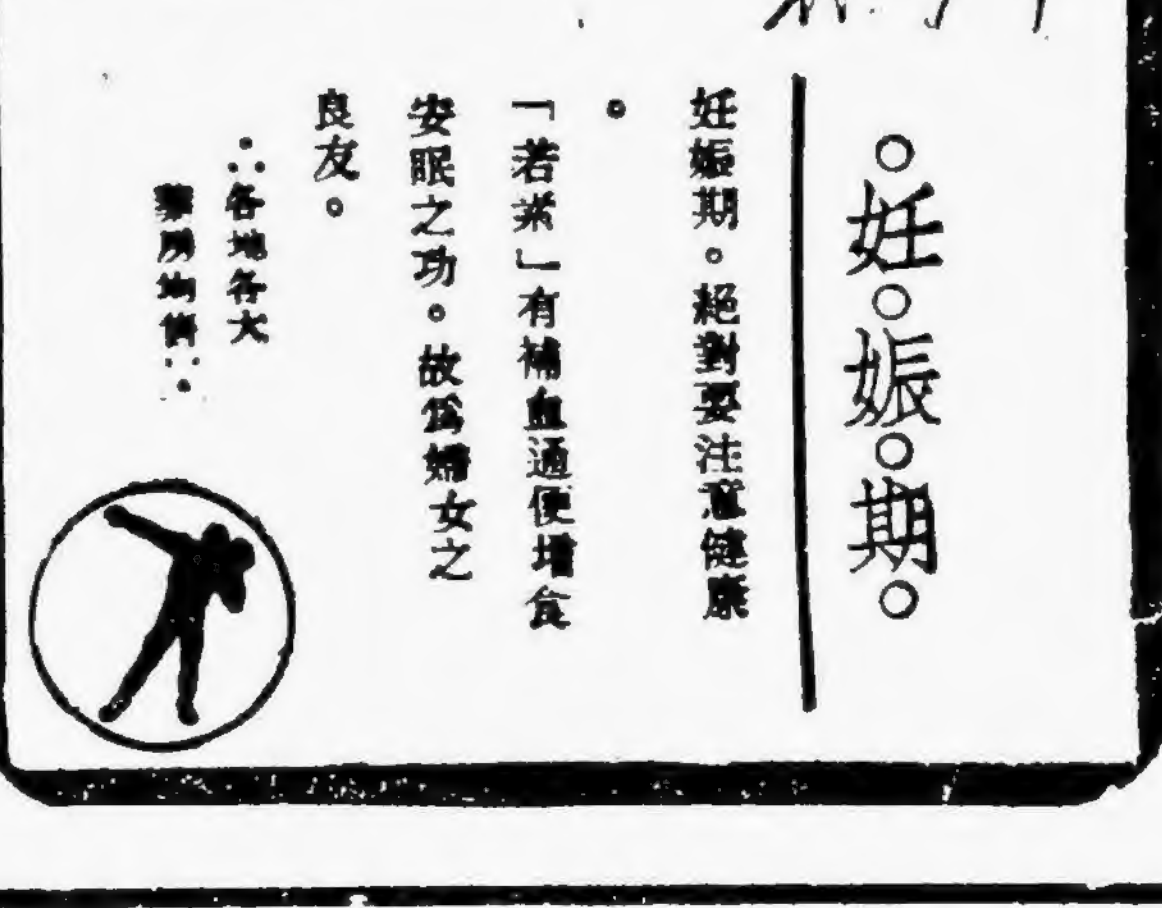 。妊。娠。期。
妊娠期。絕對要注意健康
。
「若素」有補血通便增食
安眠之功。故爲婦女之
良友。
∴各地各大
藥房均售∵